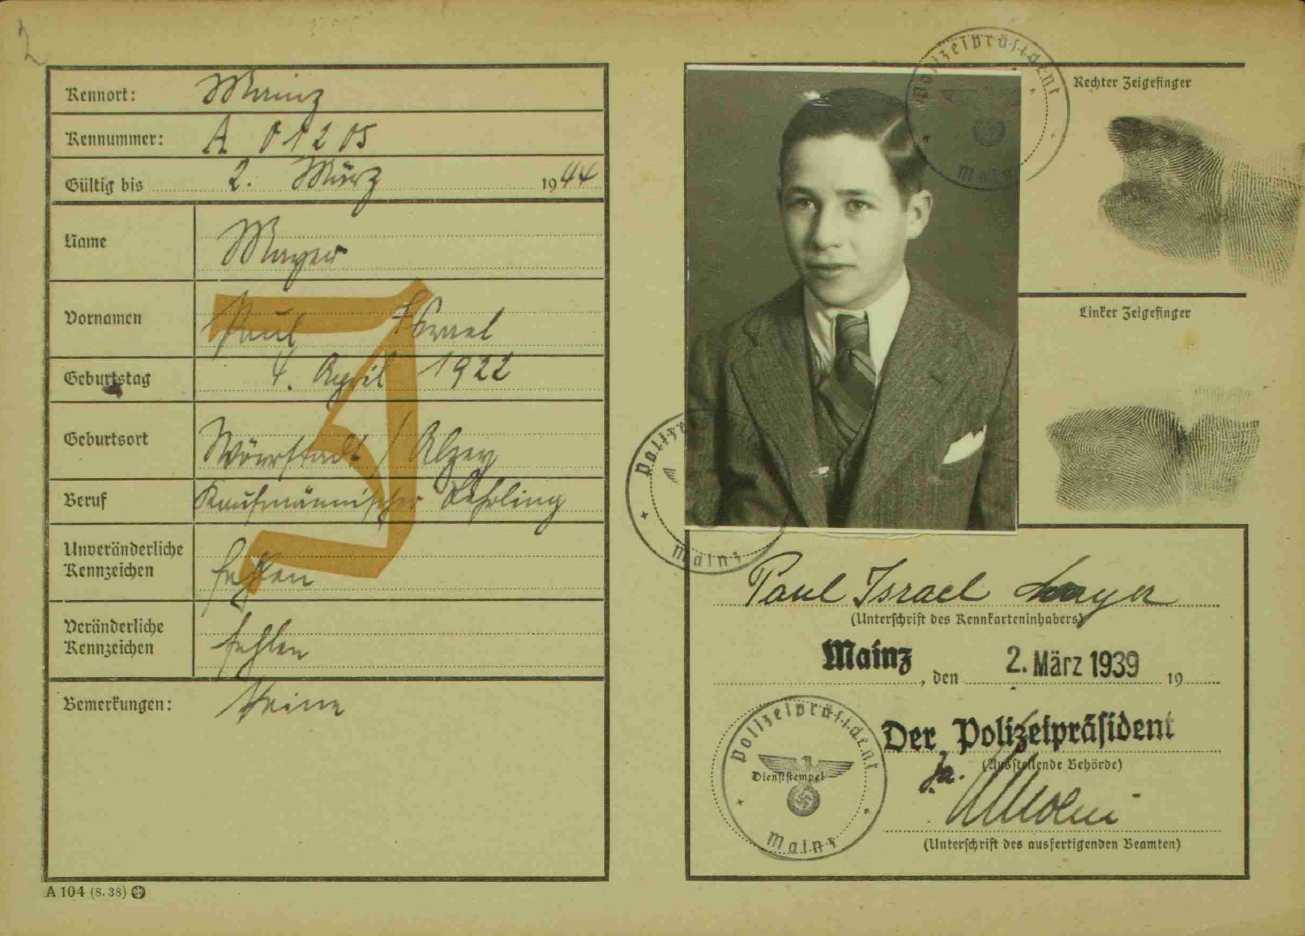 2
Kennort: Mainz
Kennummer: A 01205
Gültig bis 2. März 1944
Name Mayer
Vornamen Paul Israel
Geburtstag 4. April 1922
Geburtsort Wörrstadt / Alzey
Beruf Kaufmännischer Lehrling
Unveränderliche
Kennzeichen fehlen
Veränderliche
Kennzeichen fehlen
Bemerkungen: Keine
J
A 104 (8. 38)
Polizeipräsident
Mainz
Rechter Zeigefinger
Linker Zeigefinger
Polizei
Mainz
Paul Israel Mayer
(Unterschrift des Kennkarteninhabers)
Mainz, den 2. März 1939 19
Der Polizeipräsident
(Ausstellende Behörde)
Polizeipräsident
Dienststempel
Mainz
(Unterschrift des ausfertigenden Beamten)